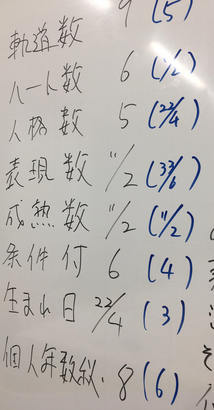 軌道数 9 (5)
ハート数 6 (11/2)
人格数 5 (22/4)
表現数 11/2 (33/6)
成熟数 11/2 (11/2)
条件付 6 (4)
生まれ日 22/4 (3)
個人年数秘. 8 (6)